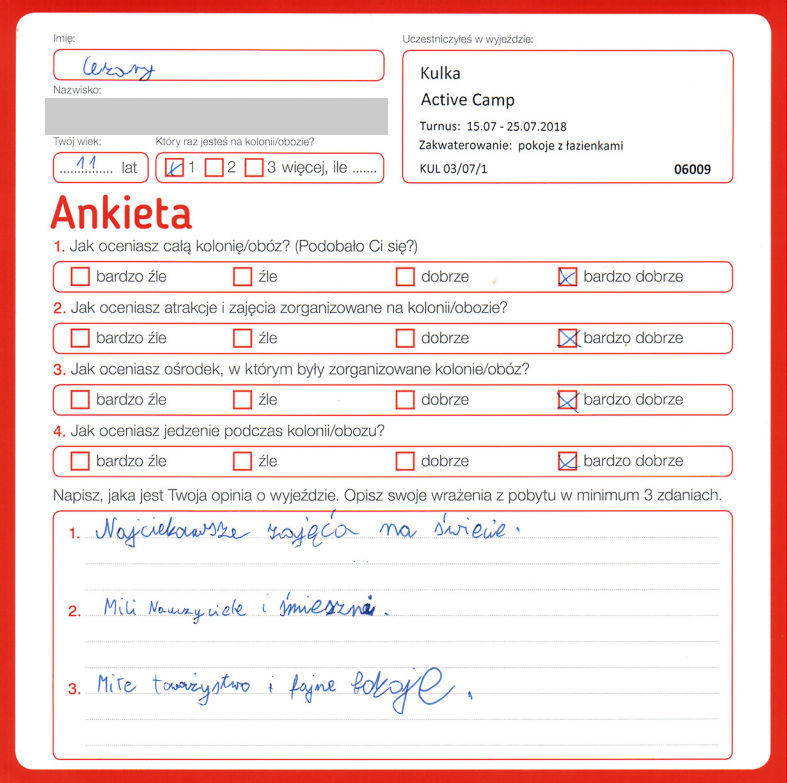 Imię:
Cezary
Uczestniczyłeś w wyjeździe:
Kulka
Active Camp
Turnus: 15.07 - 25.07.2018
Zakwaterowanie: pokoje z łazienkami
KUL 03/07/1 06009
Nazwisko:
Twój wiek:
11 lat
Który raz jesteś na kolonii/obozie?
1 2 3 więcej, ile .......
Ankieta
1. Jak oceniasz całą kolonię/obóz? (Podobało Ci się?)
bardzo źle źle dobrze bardzo dobrze
2. Jak oceniasz atrakcje i zajęcia zorganizowane na kolonii/obozie?
bardzo źle źle dobrze bardzo dobrze
3. Jak oceniasz ośrodek, w którym były zorganizowane kolonie/obóz?
bardzo źle źle dobrze bardzo dobrze
4. Jak oceniasz jedzenie podczas kolonii/obozu?
bardzo źle źle dobrze bardzo dobrze
Napisz, jaka jest Twoja opinia o wyjeździe. Opisz swoje wrażenia z pobytu w minimum 3 zdaniach.
1. Najciekawsze zajęcia na świecie.
2. Mili Nauczyciele i śmieszni.
3. Miłe toważystwo i fajne pokoje.